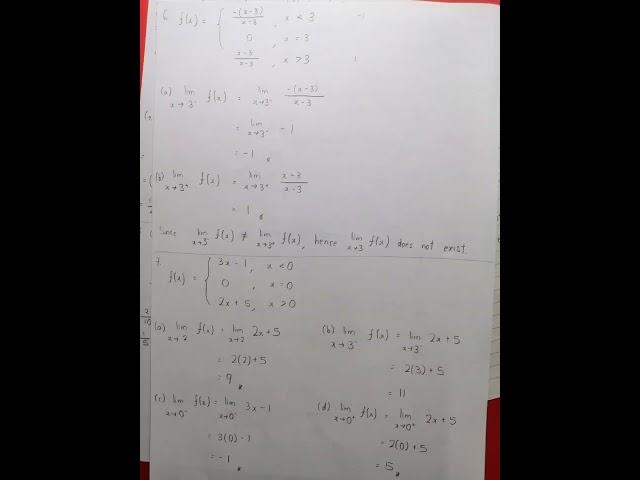 6. f(x) = { -(x-3)/x-3 , x < 3    -1
0 , x = 3
x-3/x-3 , x > 3    1
(a) lim x→3⁻ f(x) = lim x→3⁻ -(x-3)/x-3
= lim x→3⁻ -1
= -1
(b) lim x→3⁺ f(x) = lim x→3⁺ x-3/x-3
= 1
Since lim x→3⁻ f(x) ≠ lim x→3⁺ f(x), hence lim x→3 f(x) does not exist.
7.
f(x) = { 3x-1, x < 0
0 , x = 0
2x+5, x > 0
(a) lim x→2 f(x) = lim x→2 2x+5
= 2(2)+5
= 9
(b) lim x→3⁻ f(x) = lim x→3⁻ 2x+5
= 2(3)+5
= 11
(c) lim x→0⁻ f(x) = lim x→0⁻ 3x-1
= 3(0)-1
= -1
(d) lim x→0⁺ f(x) = lim x→0⁺ 2x+5
= 2(0)+5
= 5